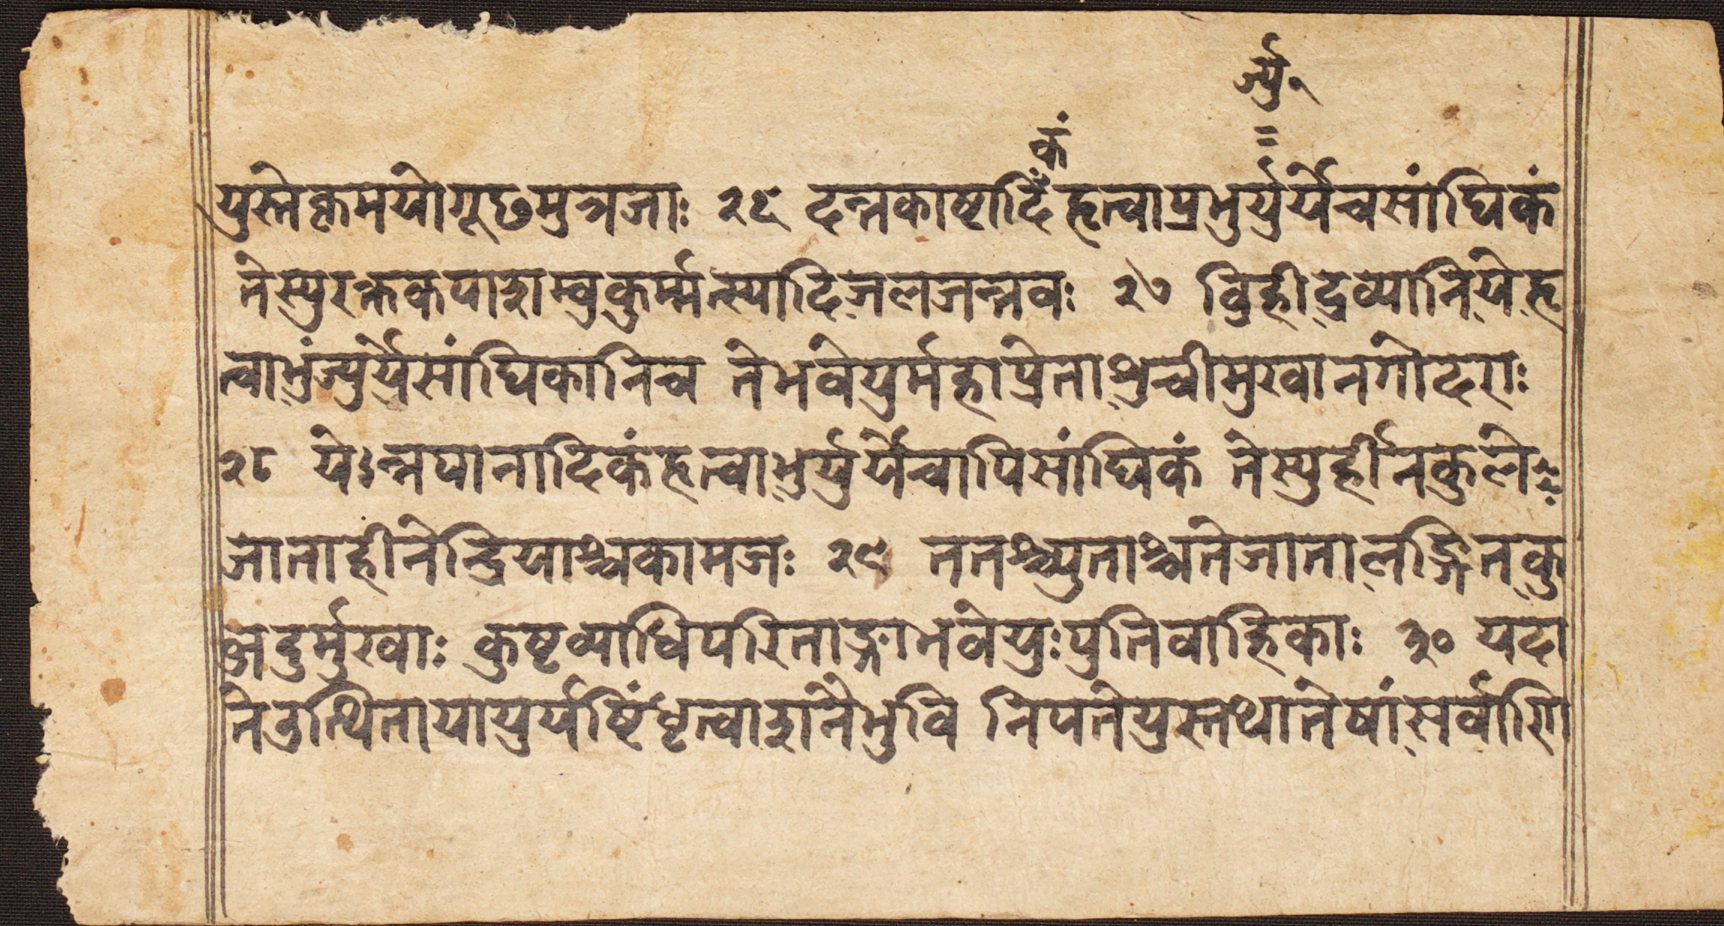 र्ज्यु१
=
कं
युस्तेकृमयोगूछमुत्रजाः २६ दन्तकाष्टादिँहृत्वाप्रभुर्यर्युर्येचसांघिकं
तेस्युरक्तकपाडाम्बुकुर्म्मत्स्यादिजलजन्तवः २७ व्रिहीद्रव्यानियेहृ
त्वाभुंज्युर्येसांघिकानिच तेभवेयुर्महाप्रेताश्रुचीमुखानगोदराः
२८ येऽन्नपानादिकंहृत्वाभुर्युर्येचापिसांघिकं तेस्युर्हीनकुले
जाताहीनेन्द्रियाश्चकामजः २९ ततश्च्युताश्चतेजातालङ्गितकु
ब्जदुर्मुखाः कुष्टव्याधिपरिताङ्गाभवेयुःपुतिवाहिकाः ३० यदा
तेउत्थितायायुर्यष्टिंधृत्वाशनैभुवि निपतेयुस्तथातेषांसर्वाणि